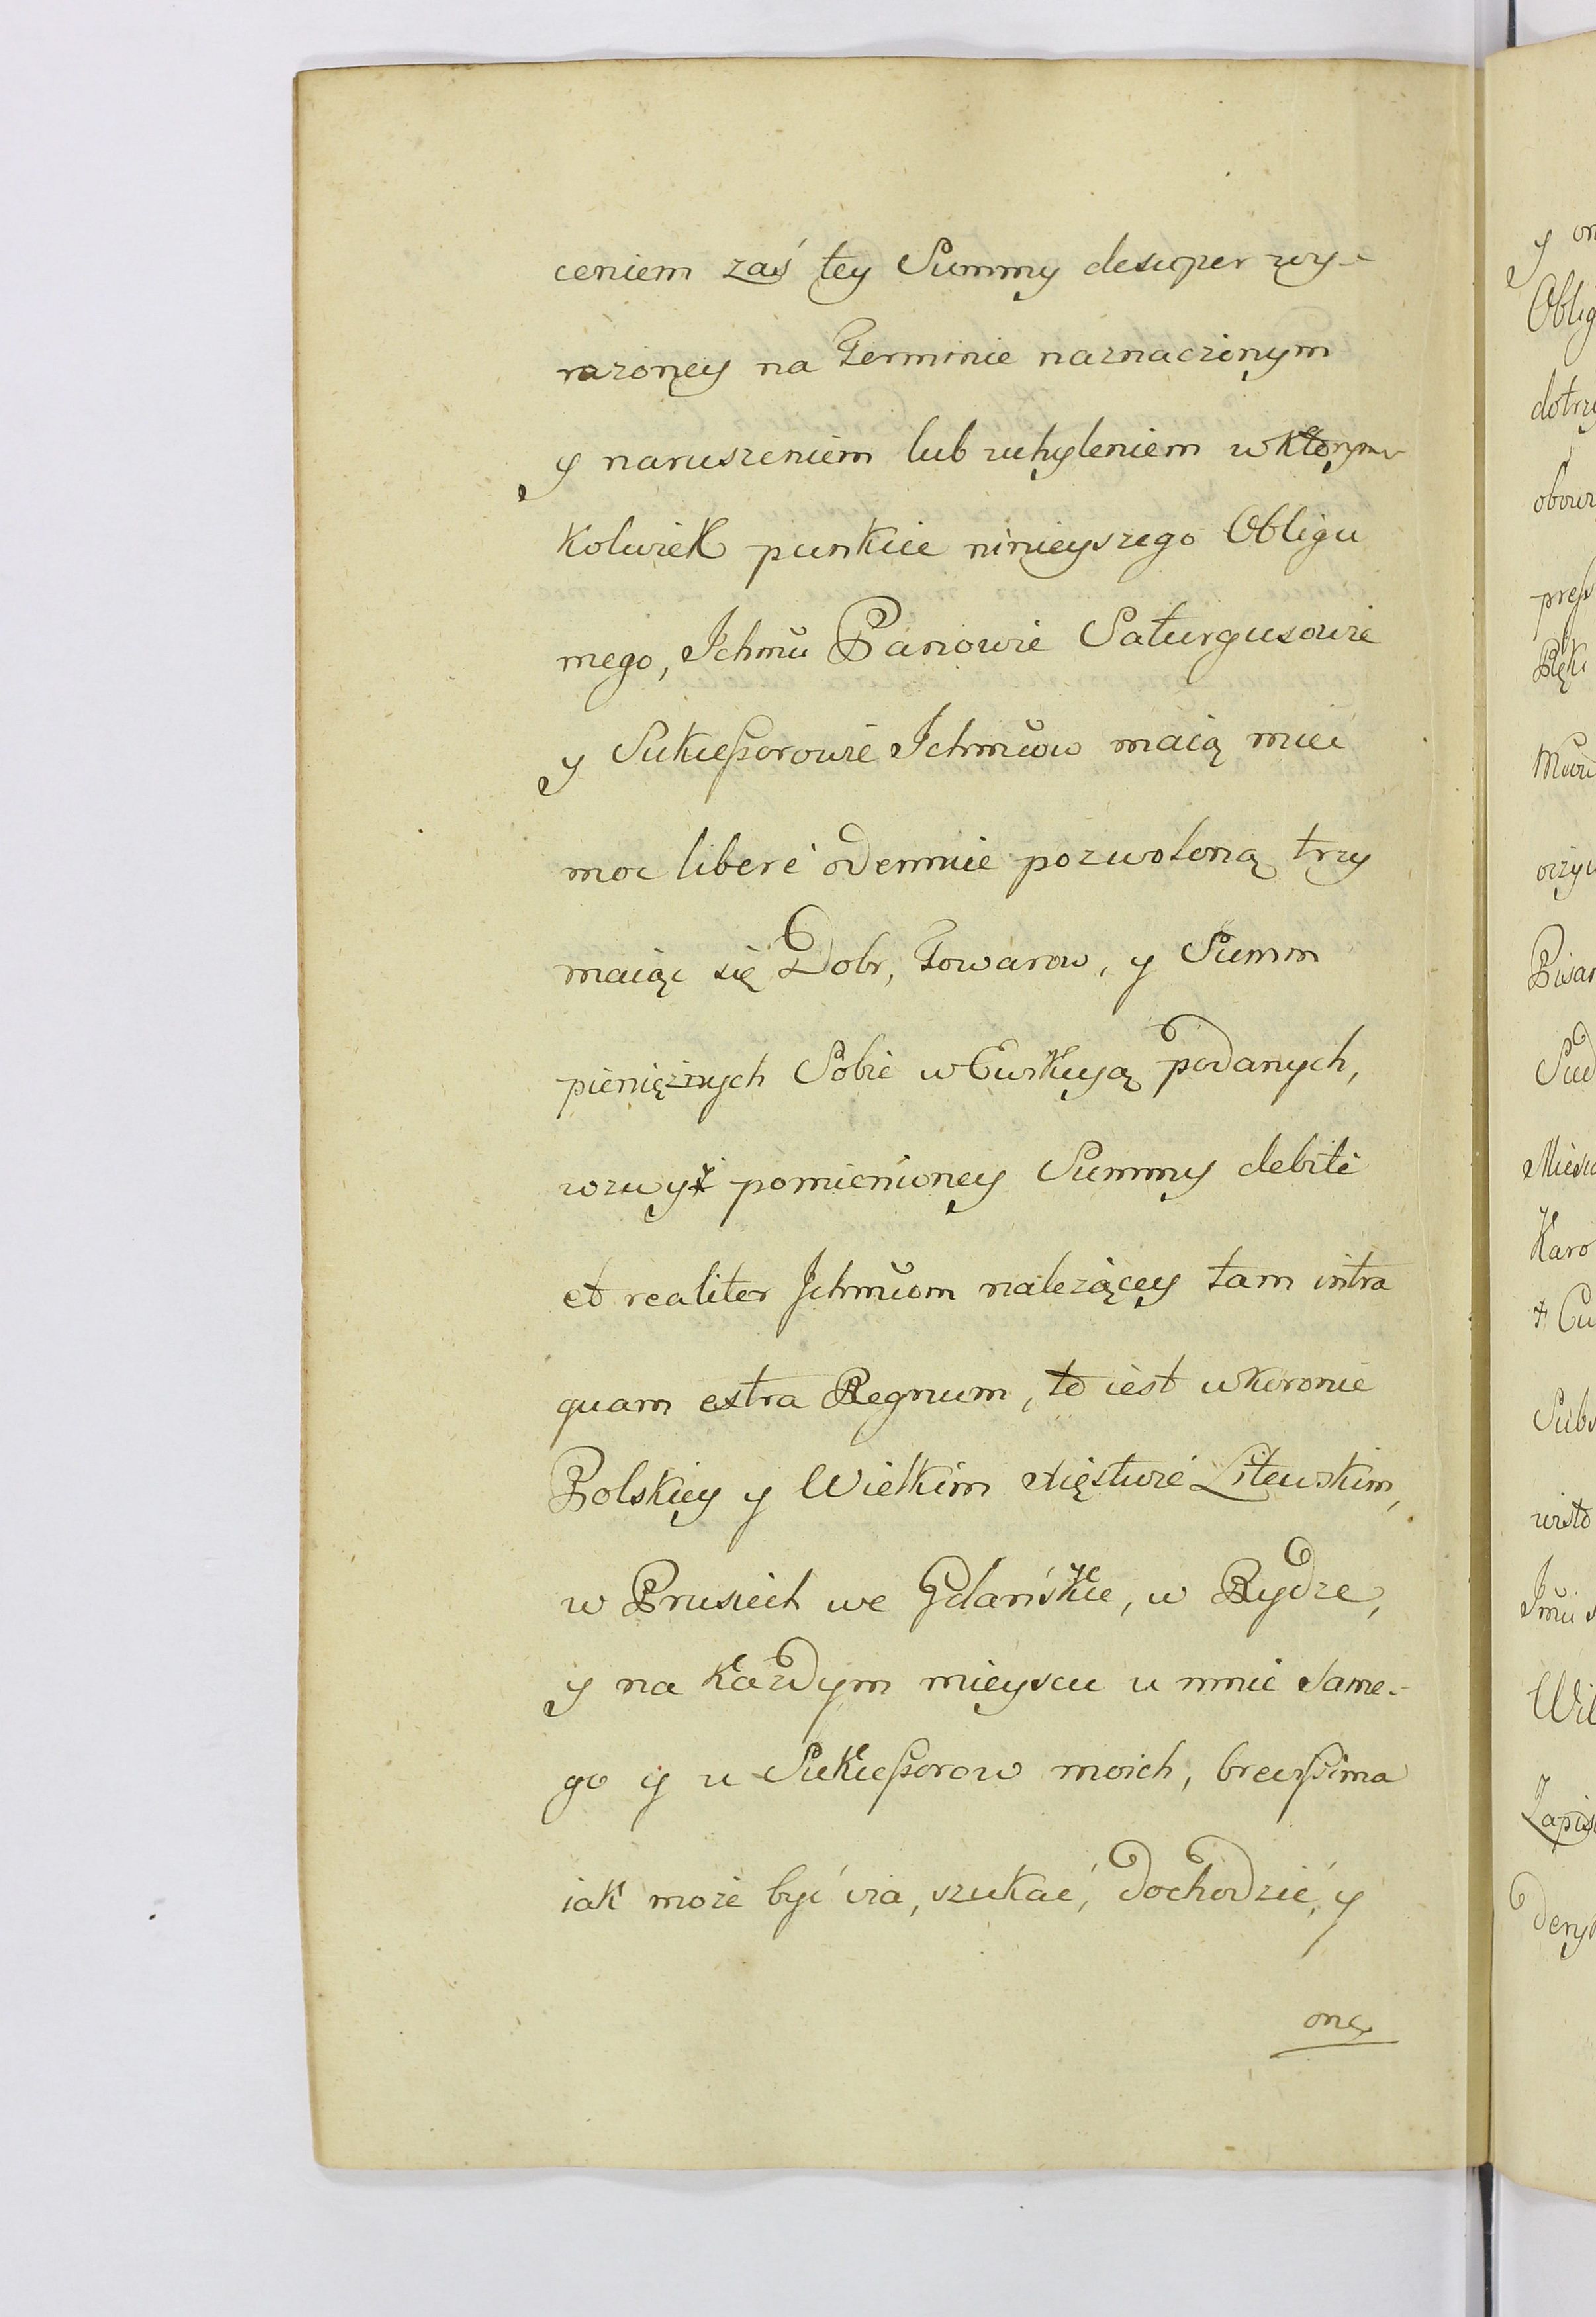 ceniem zaś tey Summy desuper wy-
rażoney na Terminie naznaczonym
y naruszeniem lub uchyleniem w którym-
Kolwiek punkcie ninieyszego Obligu
mego, Ichmu Panowie Saturgusowie
y Sukceßorowie Ichmuow maią mieć
moc liberé odemnie pozwoloną trzy
maiąc się Dobr, Towarow, y Summ
pieniężnych Sobie w Ewikcyą podanych,
wzwyż pomienioney Summy debité
et realiter Ichmuom należącey tam intra
quam extra Regnum, to iest w Koronie
Polskiey y Wielkim Xięstwie Litewskim,
w Prusiech we Gdańsku, w Rydze,
y na Każdym mieyscu u mnie same-
go y u Sukceßorow moich, brevißima
iak może być via, szukać, dochodzić, y
onę
y
Oblig
dotrzy
obow
preß
Ręki
Pisar
Sąd
Karo
Subs
Wil
Zapis